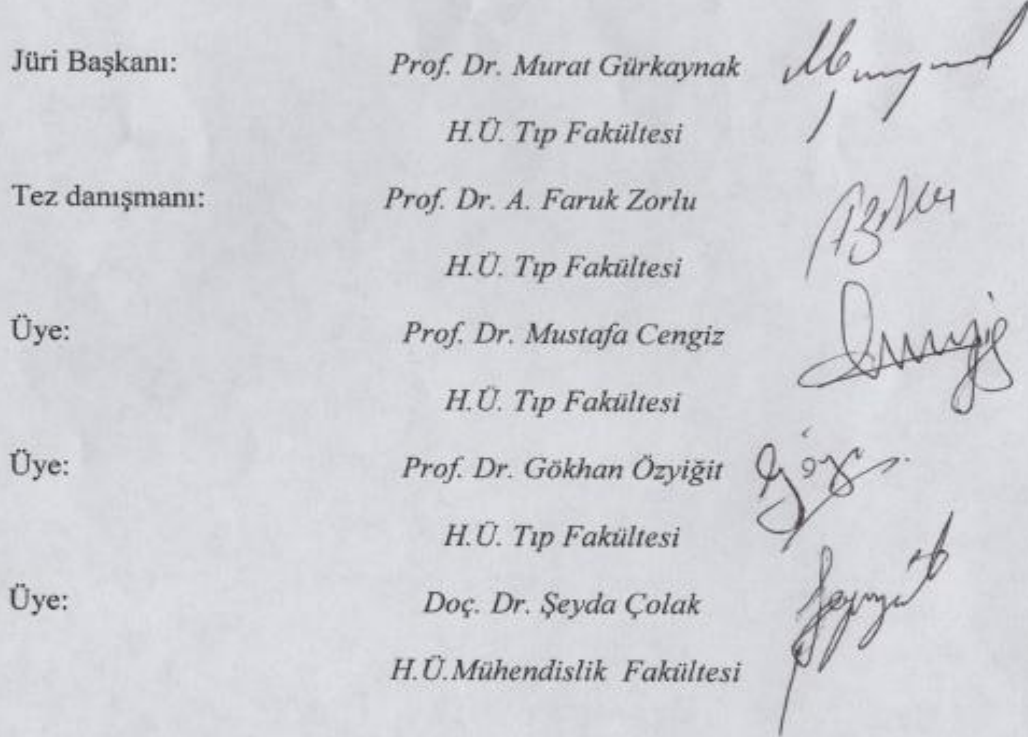 Jüri Başkanı: Prof. Dr. Murat Gürkaynak
H.Ü. Tıp Fakültesi
Tez danışmanı: Prof. Dr. A. Faruk Zorlu
H.Ü. Tıp Fakültesi
Üye: Prof. Dr. Mustafa Cengiz
H.Ü. Tıp Fakültesi
Üye: Prof. Dr. Gökhan Özyiğit
H.Ü. Tıp Fakültesi
Üye: Doç. Dr. Şeyda Çolak
H.Ü.Mühendislik Fakültesi